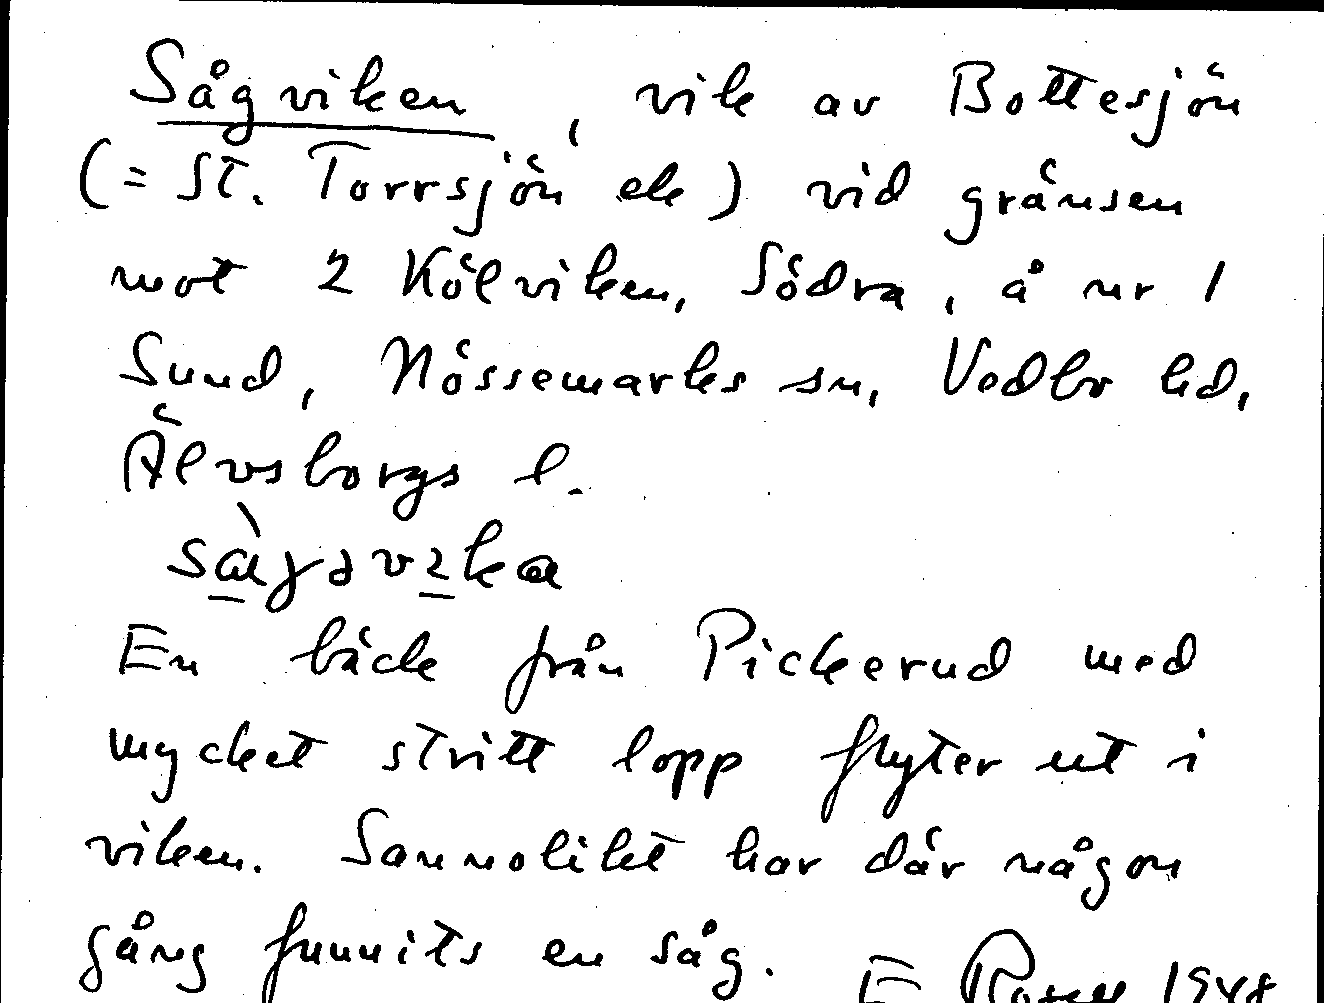 Sågviken, vik av Bottesjön
(= St. Torrsjön ek) vid gränsen
mot 2 Kölviken, Södra, å nr 1
Sund, Nössemarks sn, Vedbo hd,
Älvsborgs l.
En bäck från Pickerud med
mycket stritt lopp flyter ut i
viken. Sannolikt har där någon
gång funnits en såg. E 1948